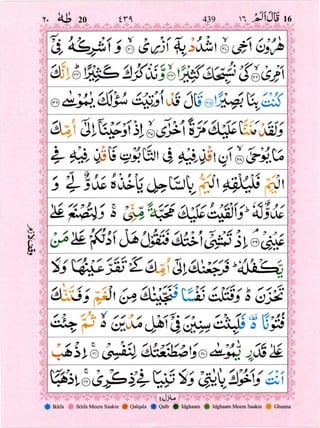 ٢٠ طٰهٰ 20 ٤٣٩ 439 ١٦ قَالَ اَلَمْ 16
هٰرُوْنَ اَخِى ۙ اشْدُدْ بِهٖۤ اَزْرِىْ ۙ وَ اَشْرِكْهُ فِىْۤ
اَمْرِىْ ۙ كَىْ نُسَبِّحَكَ كَثِيْرًا ۙ وَّ نَذْكُرَكَ كَثِيْرًا ؕ اِنَّكَ
كُنْتَ بِنَا بَصِيْرًا قَالَ قَدْ اُوْتِيْتَ سُؤْلَكَ يٰمُوْسٰى
وَلَقَدْ مَنَنَّا عَلَيْكَ مَرَّةً اُخْرٰٓى ۙ اِذْ اَوْحَيْنَاۤ اِلٰٓى اُمِّكَ
مَا يُوْحٰٓى ۙ اَنِ اقْذِفِيْهِ فِى التَّابُوْتِ فَاقْذِفِيْهِ فِى
الْيَمِّ فَلْيُلْقِهِ الْيَمُّ بِالسَّاحِلِ يَاْخُذْهُ عَدُوٌّ لِّىْ وَ
عَدُوٌّ لَّهٗ ؕ وَاَلْقَيْتُ عَلَيْكَ مَحَبَّةً مِّنِّىْ ۚ وَلِتُصْنَعَ عَلٰى
عَيْنِىْ ۘ اِذْ تَمْشِىْۤ اُخْتُكَ فَتَقُوْلُ هَلْ اَدُلُّكُمْ عَلٰى مَنْ
يَّكْفُلُهٗ ؕ فَرَجَعْنٰكَ اِلٰٓى اُمِّكَ كَىْ تَقَرَّ عَيْنُهَا وَلَا
تَحْزَنَ ؕ وَقَتَلْتَ نَفْسًا فَنَجَّيْنٰكَ مِنَ الْغَمِّ وَفَتَنّٰكَ
فُتُوْنًا ۚ فَلَبِثْتَ سِنِيْنَ فِىْۤ اَهْلِ مَدْيَنَ ۙ ثُمَّ جِئْتَ
عَلٰى قَدَرٍ يّٰمُوْسٰى وَاصْطَنَعْتُكَ لِنَفْسِىْ ۚ اِذْهَبْ
اَنْتَ وَاَخُوْكَ بِاٰيٰتِىْ وَلَا تَنِيَا فِىْ ذِكْرِىْ ۚ اِذْهَبَاۤ
وقف لازم
منزل٤
Ikhfa Ikhfa Meem Saakin Qalqala Qalb Idghaam Idghaam Meem Saakin Ghunna